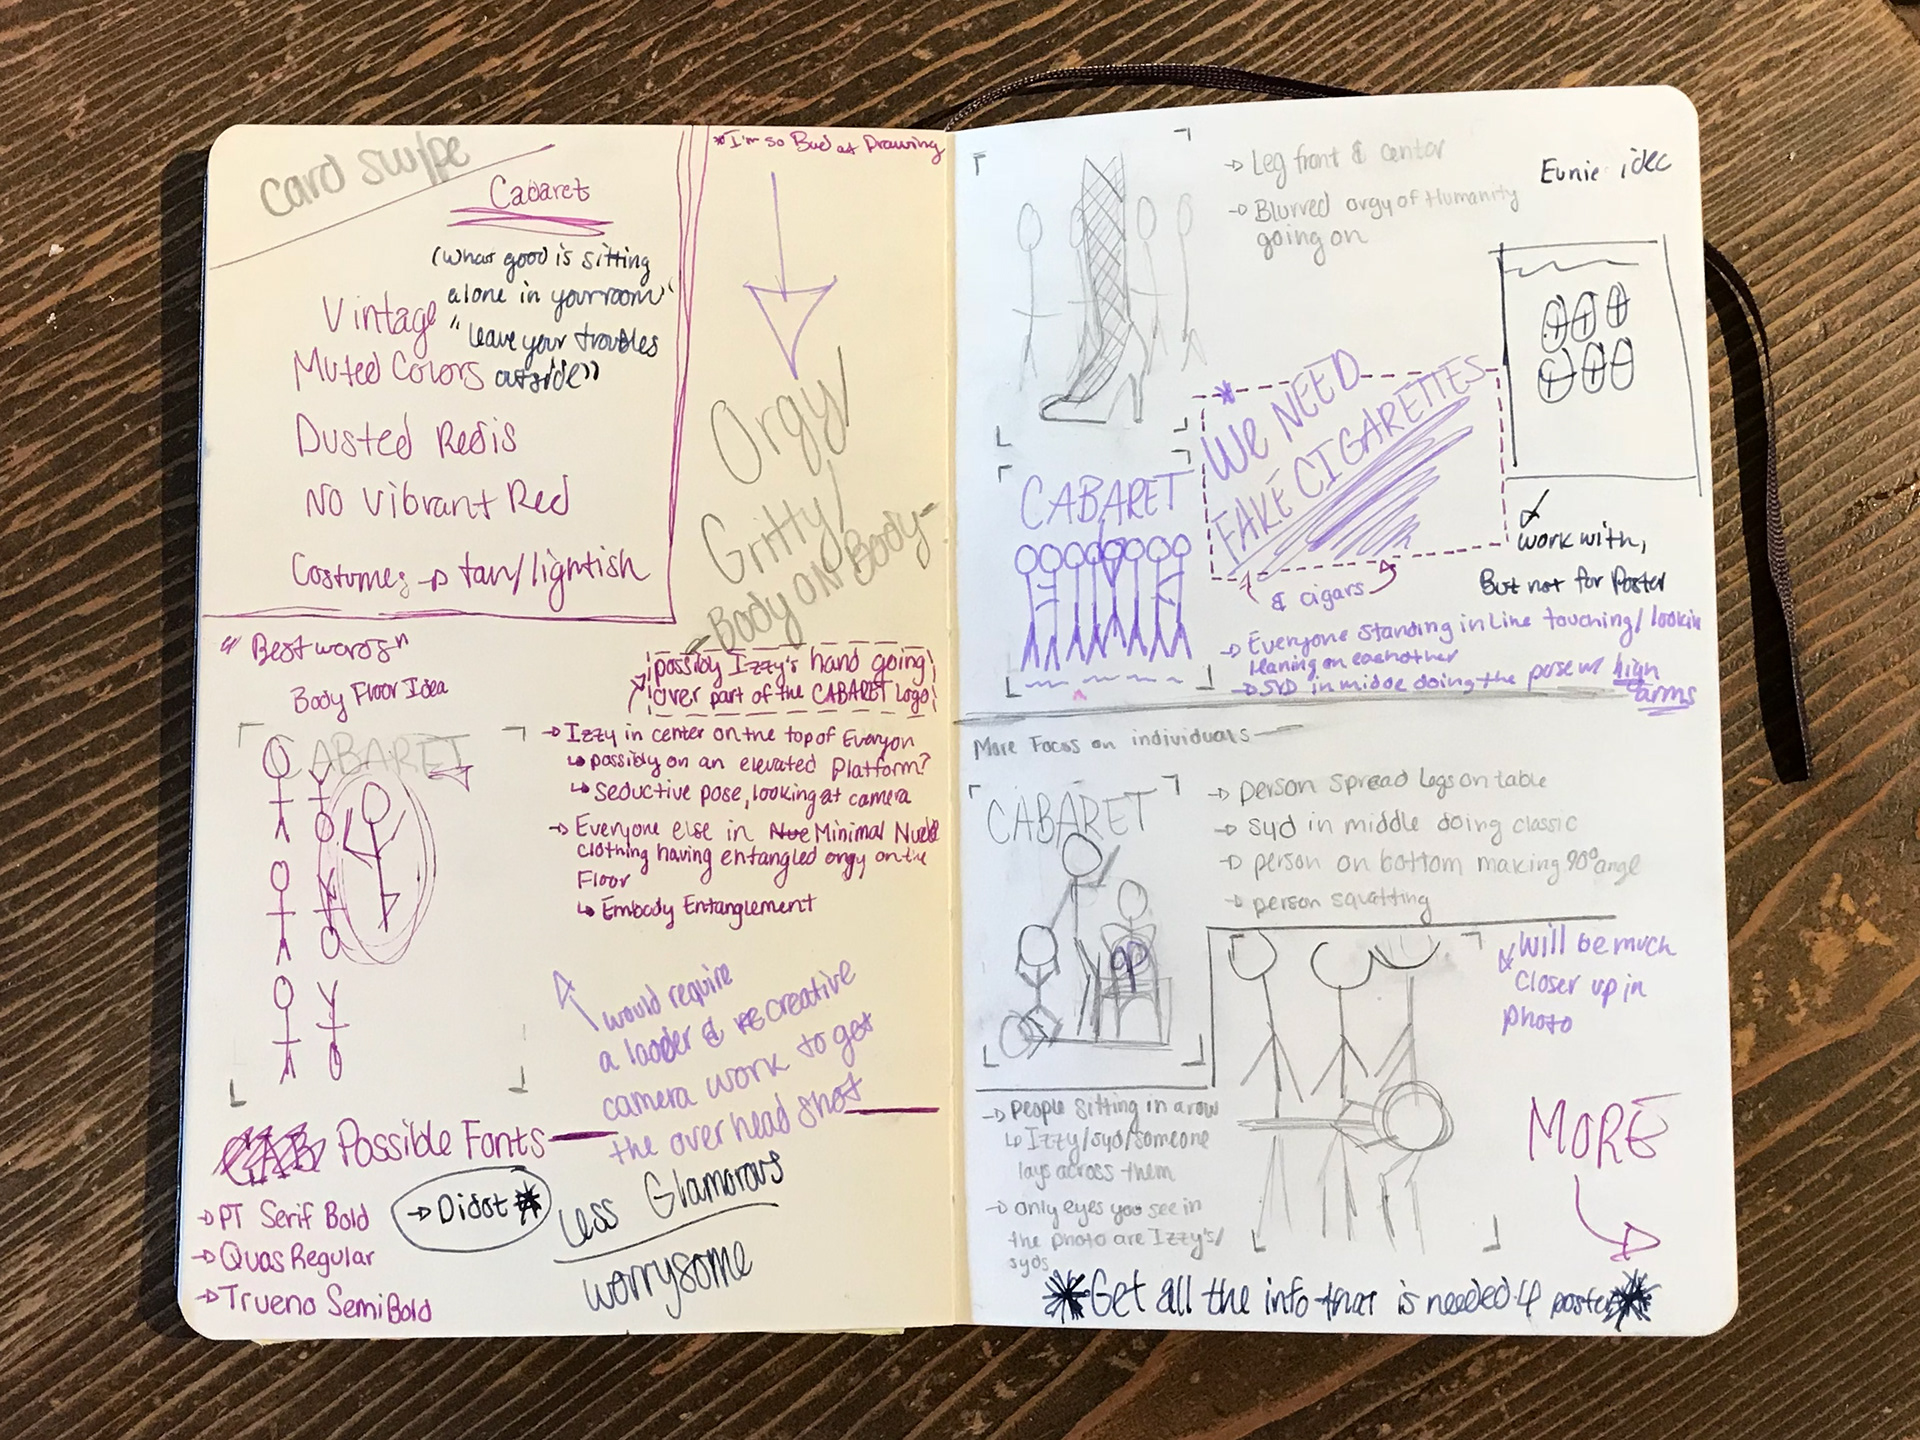 card swipe
Cabaret
(what good is sitting
alone in your room"
"leave your troubles
outside"
Vintage
Muted Colors
Dusted Reds
No Vibrant Red
Costumes → tan/lightish
*I'm so Bad at Drawing
Orgy/
Gritty/
Body on Body
"Best words"
Body Floor Idea
possibly Izzy's hand going
over part of the CABARET Logo
CABARET
→ Izzy in center on the top of Everyon
↳ possibly on an elevated Platform?
↳ Seductive pose, looking at camera
→ Everyone else in Nue Minimal Nude
clothing having entangled orgy on the
Floor
↳ Embody Entanglement
would require
a ladder & creative
camera work to get
the over head shot
Possible Fonts
→ PT Serif Bold
→ Quas Regular
→ Trueno SemiBold
→ Didot *
Less Glamorous
worrysome
→ Leg front & center
→ Blurred orgy of Humanity
going on
Eunie
We NEED
FAKE CIGARETTES
& cigars
work with,
But not for Poster
CABARET
→ Everyone Standing in Line touching/lookin
leaning on eachother
→ SYD in middle doing the pose w/ high
arms
More Focus on individuals
CABARET
→ person spread legs on table
→ syd in middle doing classic
→ person on bottom making 90° angl
→ person squatting
will be much
closer up in
photo
→ people sitting in a row
↳ Izzy/syd/someone
lays across them
→ only eyes you see in
the photo are Izzy's/
syds
MORE
*Get all the info that is needed 4 poster*